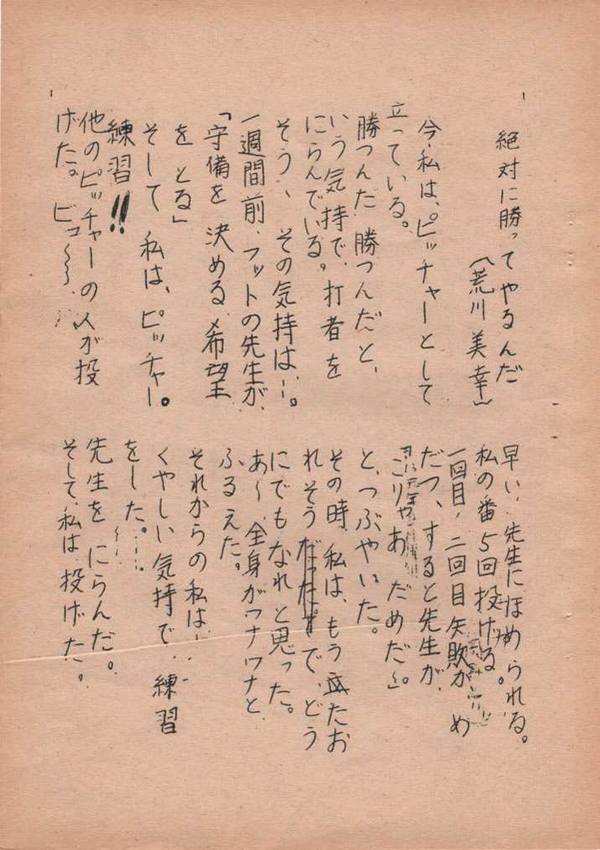 絶対に勝ってやるんだ
(荒川美幸)
今、私は、ピッチャーとして
立っている。
勝つんだ 勝つんだと、
いう気持で、打者を
にらんでいる。
そう、その気持は…。
一週間前、フットの先生が、
「守備を 決める 希望
を とる」
そして 私は、ピッチャー。
練習!!
他のピッチャーの人が投
げた。ビュ〜〜、
早い、先生にほめられる。
私の番 5回投げる。
一回目、二回目 矢敗が め
だつ、すると先生が、
こりゃあ だめだ〜。
と、つぶやいた。
その時、私は、もう たお
れそう で、どう
にでもなれ と思った。
あ〜、全身がワナワナと
ふるえた。
それからの私は…
くやしい気持で 練習
をした。
先生を にらんだ。
そして、私は 投げた。